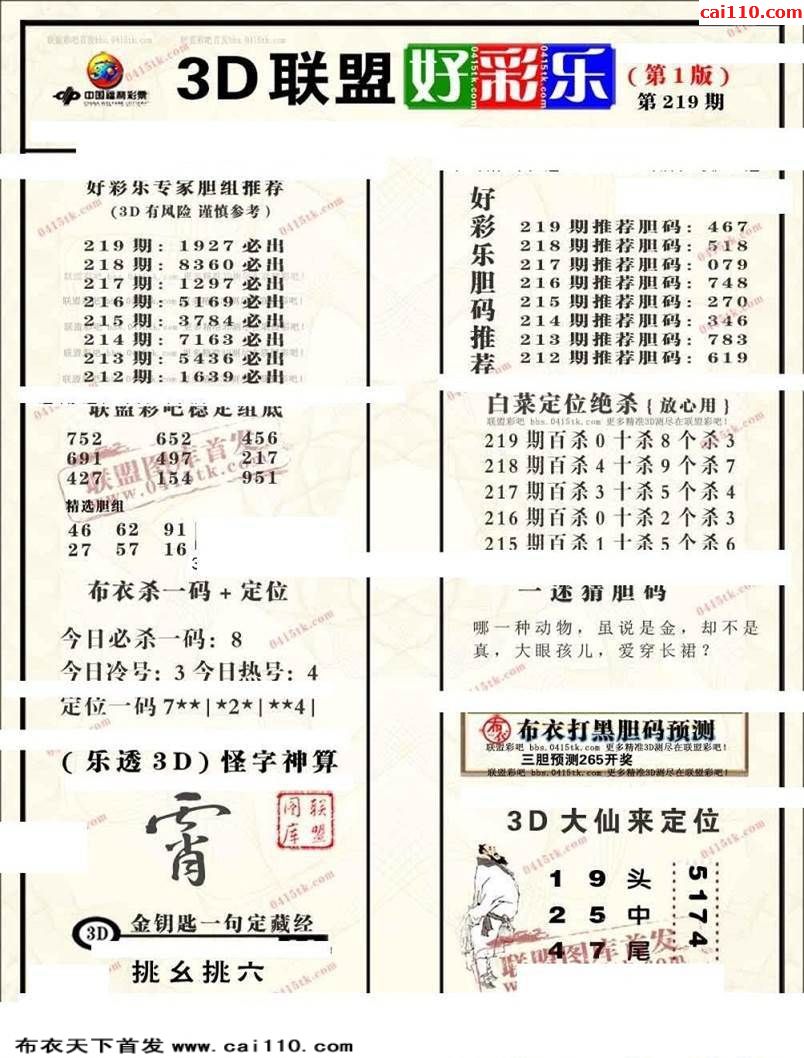 cai110.com
中国福利彩票
CHINA WELFARE LOTTERY
3D联盟好彩乐
(第1版)
第219期
好彩乐专家胆组推荐
(3D有风险 谨慎参考)
219期: 1927必出
218期: 8360必出
217期: 1297必出
216期: 5169必出
215期: 3784必出
214期: 7163必出
213期: 5436必出
212期: 1639必出
好彩乐胆码推荐
219期推荐胆码: 467
218期推荐胆码: 518
217期推荐胆码: 079
216期推荐胆码: 748
215期推荐胆码: 270
214期推荐胆码: 346
213期推荐胆码: 783
212期推荐胆码: 619
联盟彩吧稳定组底
752 652 456
691 497 217
427 154 951
精选胆组
46 62 91
27 57 16
白菜定位绝杀{放心用}
联盟彩吧 bbs.0415tk.com 更多精准3D测尽在联盟彩吧!
219期百杀0十杀8个杀3
218期百杀4十杀9个杀7
217期百杀3十杀5个杀4
216期百杀0十杀2个杀3
215期百杀1十杀5个杀6
布衣杀一码+定位
今日必杀一码: 8
今日冷号: 3 今日热号: 4
定位一码7**|*2*|**4|
一迷猜胆码
哪一种动物, 虽说是金, 却不是
真, 大眼孩儿, 爱穿长裙?
布衣打黑胆码预测
联盟彩吧 bbs.0415tk.com 更多精准3D测尽在联盟彩吧!
三胆预测265开奖
联盟彩吧 bbs.0415tk.com 更多精准3D测尽在联盟彩吧!
(乐透3D)怪字神算
霄
联盟图库
3D 金钥匙一句定藏经
挑幺挑六
3D大仙来定位
1 9 头
2 5 中
4 7 尾
5174
联盟图库首发
www.0415tk.com
布衣天下首发 www.cai110.com